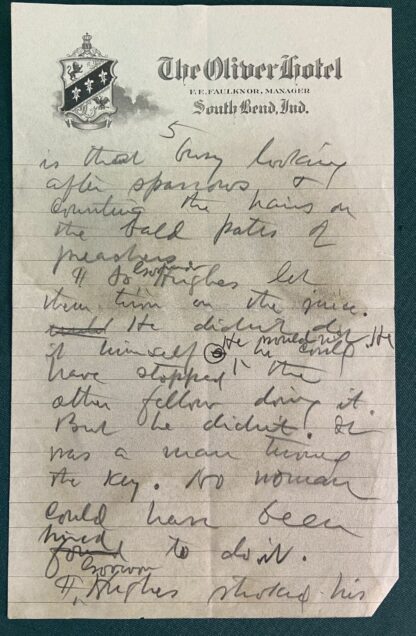 The Oliver Hotel
F. E. FAULKNOR, MANAGER
South Bend, Ind.
5
is that busy looking
after sparrows &
counting the hairs on
the bald pates of
preachers
¶ So Governor Hughes let
them turn on the juice.
He didn't do
it himself. He would not. He
have stopped if he could the
other fellow doing it.
But he didn't. It
was a man turning
the key. No woman
could have been
hired
found to do it.
Governor
¶ Hughes stroked his